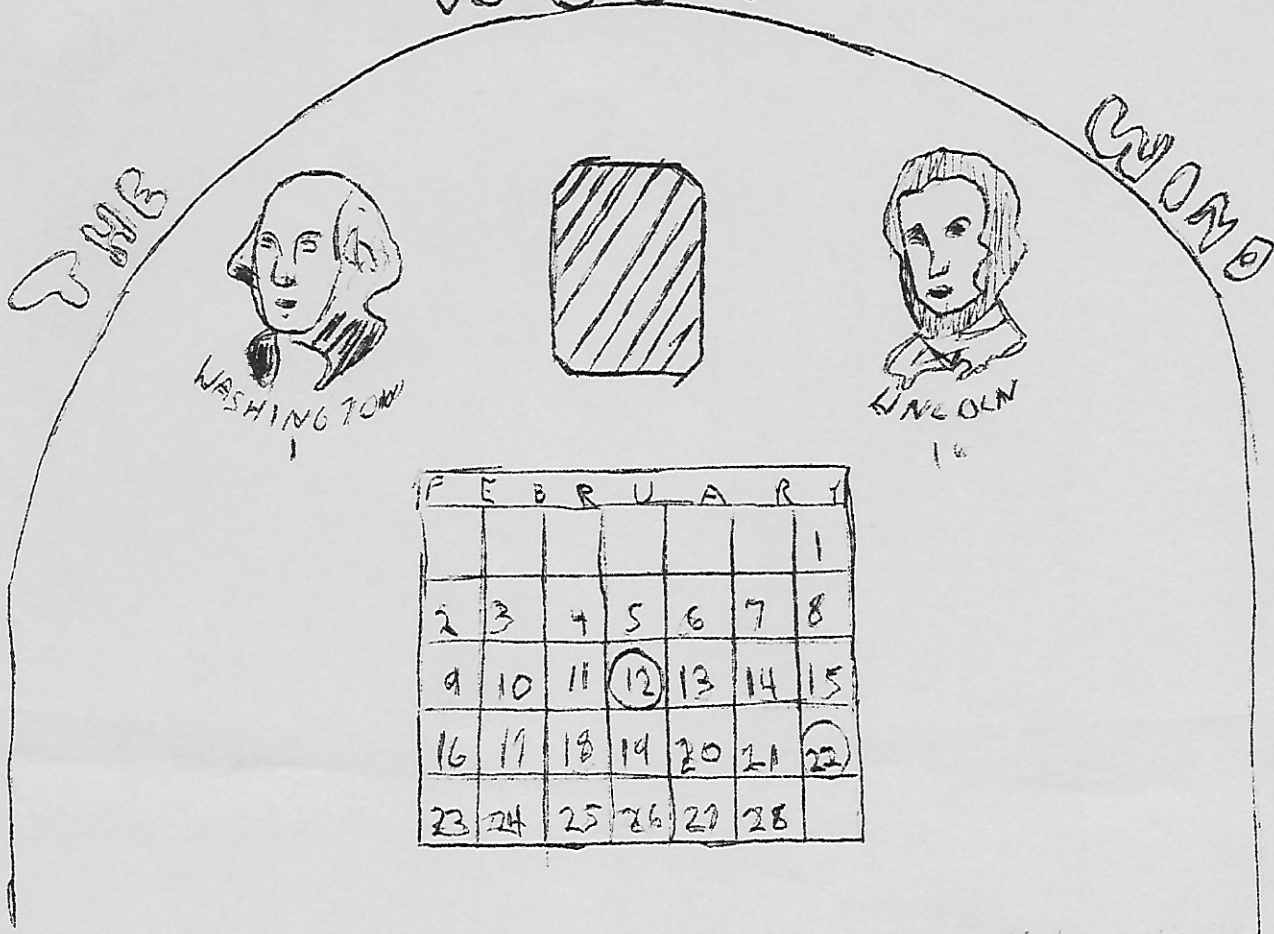 THE
WIND
WASHINGTON
1
LINCOLN
16
FEBRUARY
1
2 3 4 5 6 7 8
9 10 11 12 13 14 15
16 17 18 19 20 21 22
23 24 25 26 27 28